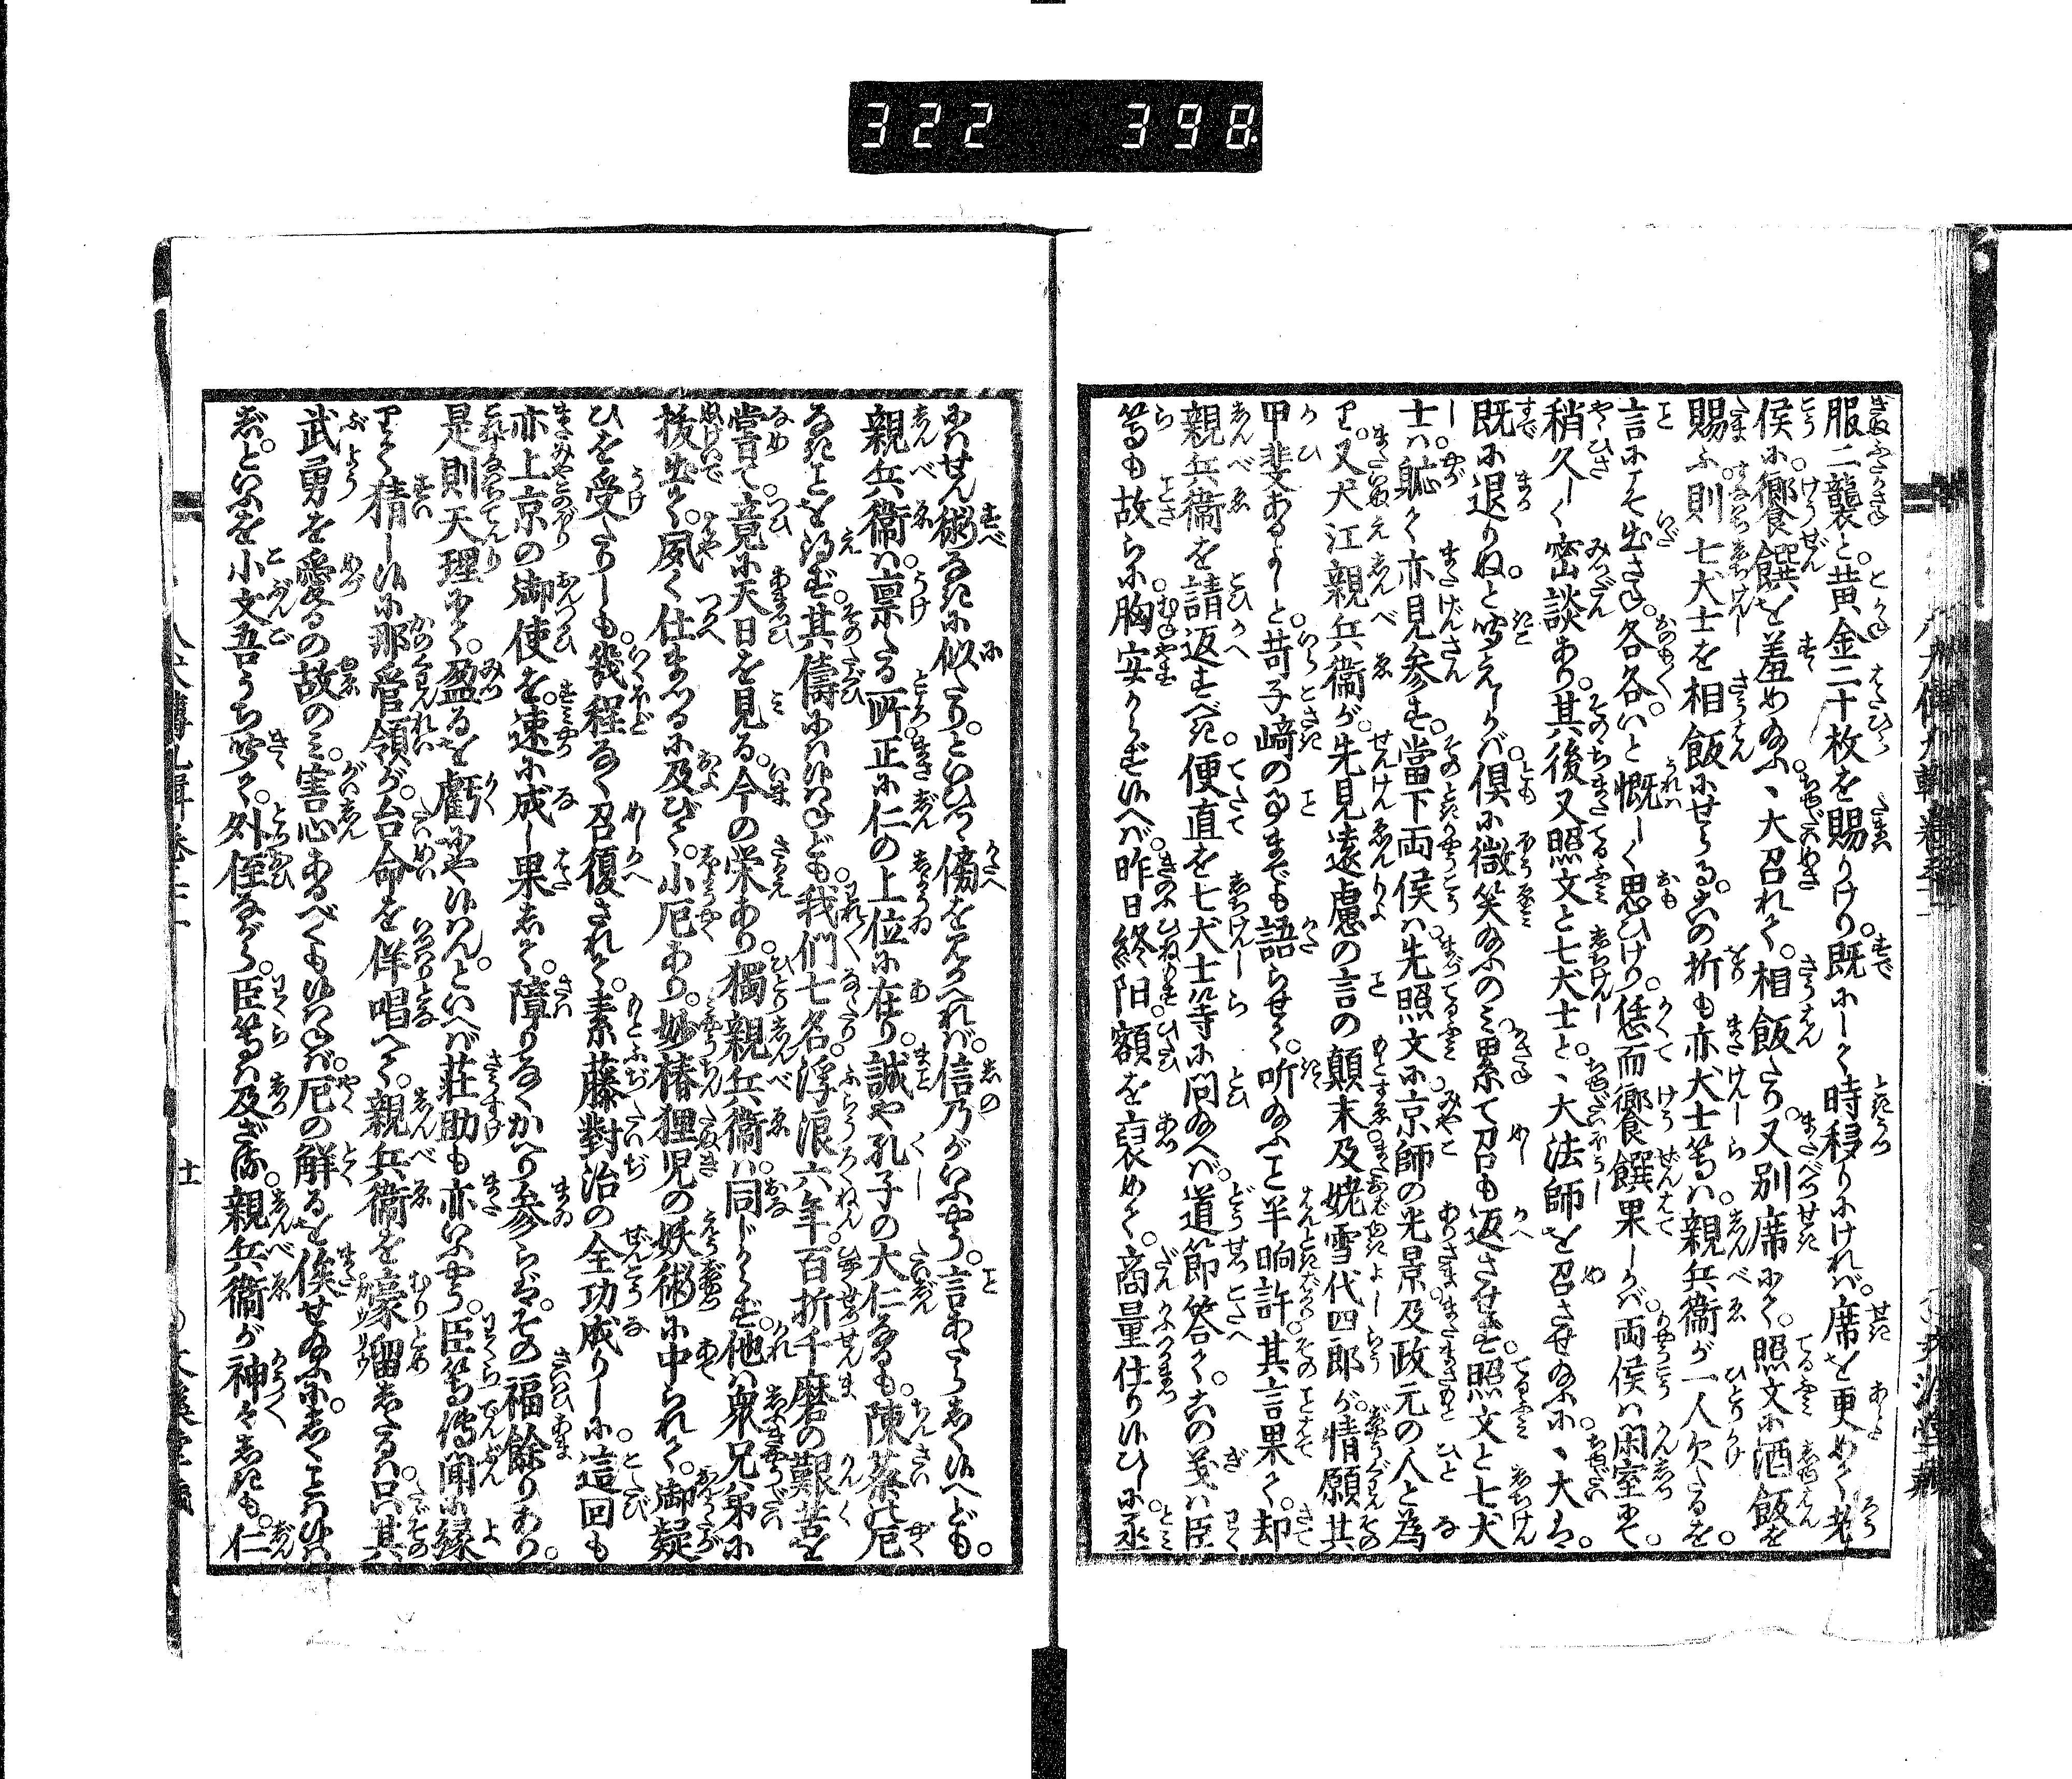 322 398
服二襲と。黄金二十枚を賜りけり。既にして時移りにければ。席を更めて老
侯に饗饌を羞め給ふ、大召れて。相飯たり。又別席にて。照文に酒飯を
賜ふ則七犬士を相飯にせらる。この折も亦犬士等は。親兵衛が一人欠たるを。
言にこそ出さね。各各。いと慨しく思ひけり。恁而饗饌果しかば。両侯は閑室にて。
稍久しく密談あり。其後又照文と七犬士と。、大法師を召させ給ふに。、大は。
既に退りぬと聞えしかば。倶に微笑給ふのミ。累て召も返させず。照文と七犬
士は。軈て亦見参す。當下両侯は。先照文に京師の光景。及政元の人と為
り。又犬江親兵衛が。先見遠慮の言の顛末。及姥雪代四郎が。情願其
甲斐あるよしと。苛子﨑の事までも語らせて。听給ふこと半晌許。其言果て。却
親兵衛を請返すべき。便直を七犬士等に問給へば。道節答て。この義は臣
等も故らに。胸安からず候へば。昨日終阳額を裒めて。商量仕り候ひしに。丞
にはせん術なきに似たり。といひつゝ傍を見かへれば。信乃がいふやう。言わろく候へども。
親兵衛は。禀たる所。正に仁の上位に在り。誠や孔子の大仁なるも。陳蔡の厄
なきことを得ず。其儔には候はねども。我們七名。浮浪六年。百折千磨の艱苦を
嘗て。竟に天日を見る。今の栄あり。獨親兵衛は。同じからず。他は衆兄弟に
拔出て。夙く仕まつるに及びて。小厄あり。妙椿狸児の妖術に中られて。御疑
ひを受たりしも。幾程なく召復されて。素藤對治の全功成りしに。這回も
亦上京の御使を。速に成し果して。障りなくかへり参らば。その福餘りあり。
是則天理にて。盈るを虧にや候はん。といへば荘助も亦いふやう。臣等傳聞に縁
りて猜し候に。那管領が。台命を佯唱へて。親兵衛を壕溜したるは。只其
武勇を愛るの故のミ。害心あるべくも候はねば。厄の觧るを俟せ給ふに。しくことは候
はじ。といふを小文吾うち聞て。外侄ながら。臣等は及ばぬ。親兵衛が神々しきも。仁